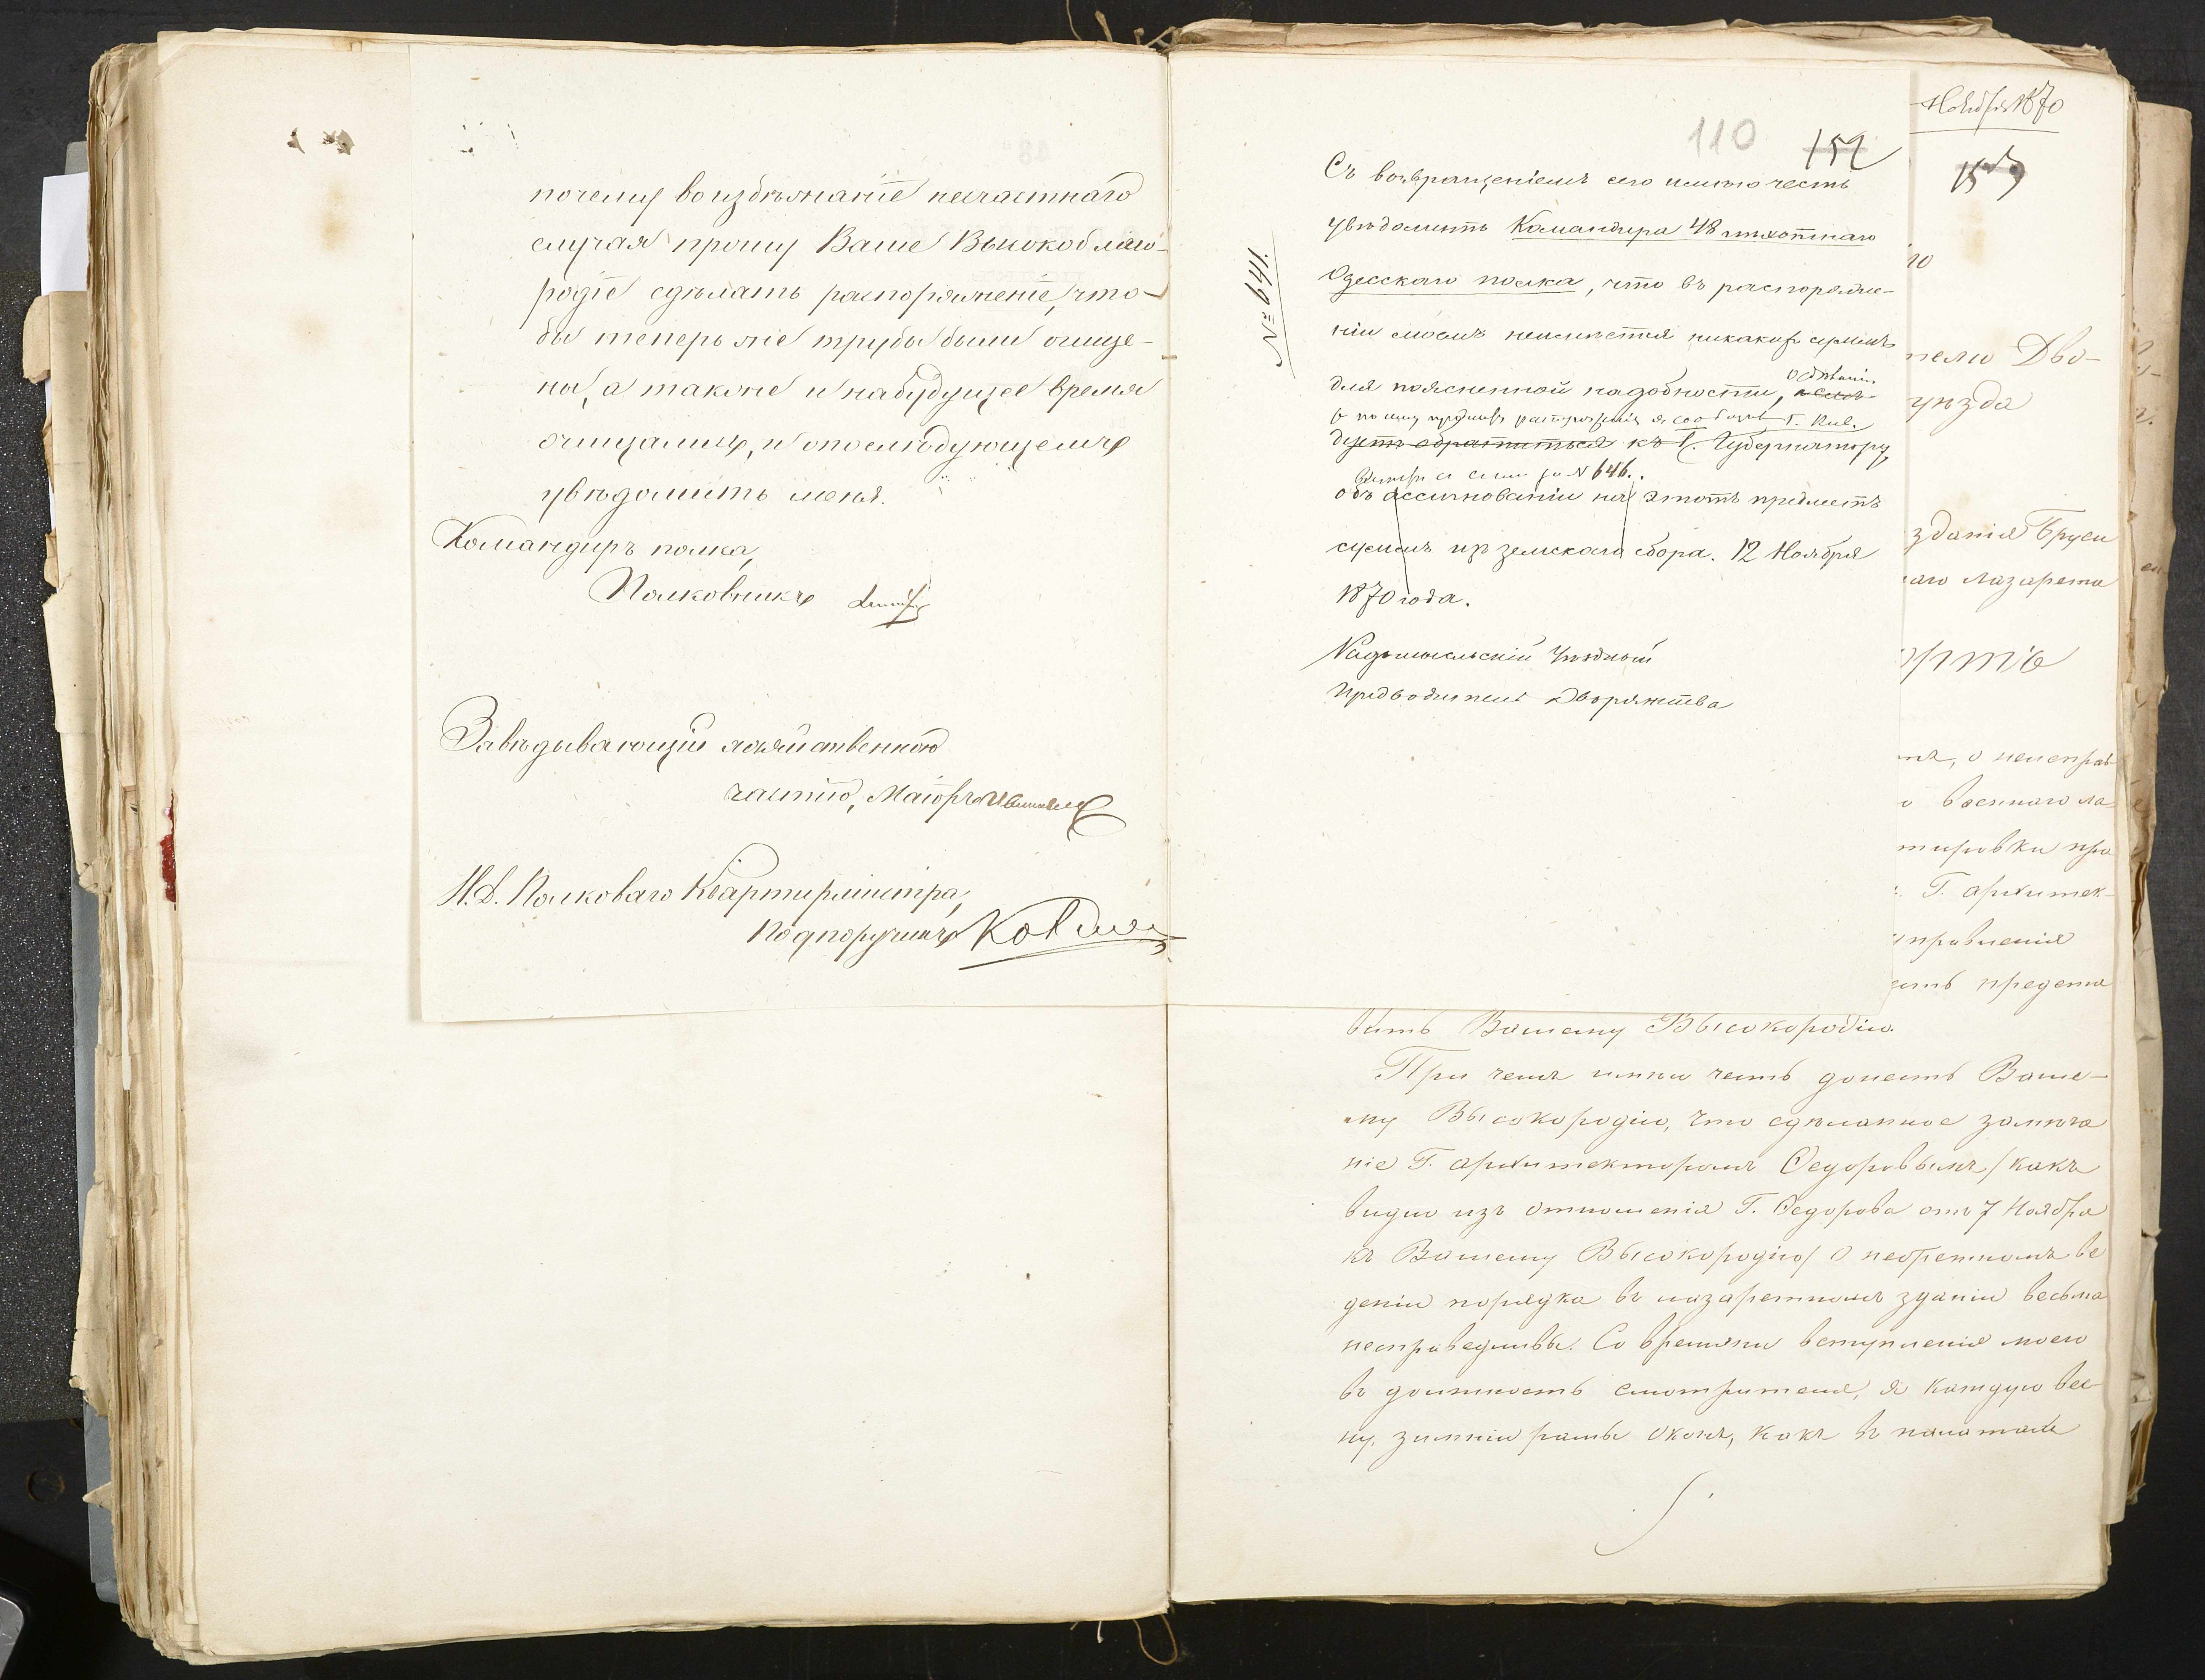 почему во избѣжаніе несчастнаго
случая прошу Ваше Высокоблаго-
родіе сдѣлать распоряженіе, что-
бы теперь же трубы были очище-
ны, а также и на будущее время
очищались, и о послѣдующемъ
увѣдомить меня.
Командиръ полка,
Полковникъ
Завѣдывающій хозяйственною
частію, Маіоръ
И. д. Полковаго Квартирмистра,
Подпоручикъ
110 152
Съ возвращеніемъ сего имѣю честь
увѣдомить Командира 48 пѣхотнаго
Одесскаго полка, что въ распоряже-
ніи моемъ неимѣется никакихъ суммъ
для поясненной надобности,
объ
с. Кіев.
дуетъ обратиться къ Г. Губернатору
за № 646.
объ ассигнованіи на этотъ предметъ
суммъ изъ земскаго сбора. 12 Ноября
1870 года.
Радомысльскій Уѣздный
Предводитель Дворянства
№ 641.
Ноября 1870
153
го
телю Дво-
уѣзда
зданія Бруси
наго лазарета
ортъ
о неисправ
военнаго ла
тировки
Г. архитек-
правленія
предста
вить Вашему Высокородію.
При чемъ имѣю честь донесть Ваше-
му Высокородію, что сдѣланное замѣча
ніе Г. архитекторомъ Федоровымъ (какъ
видно изъ отношенія Г. Федорова отъ 7 Ноября
къ Вашему Высокородію) о небрежномъ ве
деніи порядка въ лазаретномъ зданіи весьма
несправедливы. Со времени вступленія моего
въ должность смотрителя, я каждую вес-
ну, зимніи рамы оконъ, какъ въ палатахъ